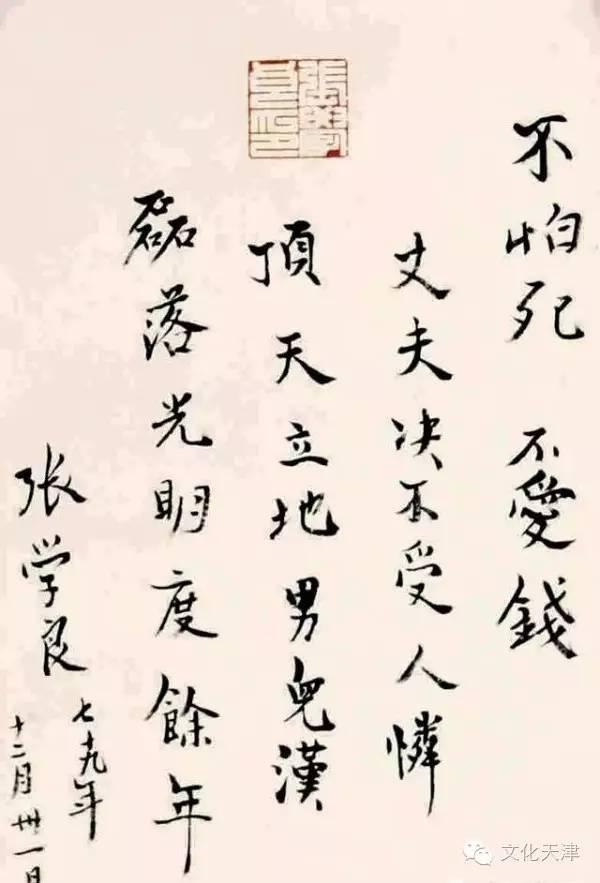 不怕死 不愛錢
丈夫决不受人憐
頂天立地男兒漢
磊落光明度餘年
张学良
七十九年
十二月卅一日
張學良印
文化天津